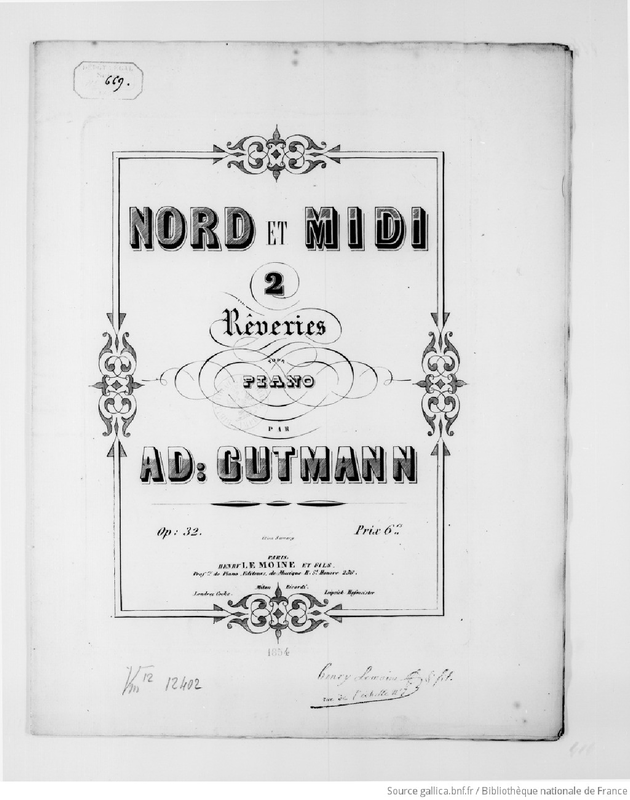 669.
NORD ET MIDI
2
Rêveries
POUR
PIANO
PAR
AD: GUTMANN
Op: 32.
Prix 6f
PARIS.
HENRY LEMOINE ET FILS.
Proff. de Piano, Editeurs, de Musique R. St. Honoré 256.
Milan Ricordi.
Londres Cocks. Leipzick Hofmeister
1854
Vm 12 12402
henry lemoine & fils.
Source gallica.bnf.fr / Bibliothèque nationale de France